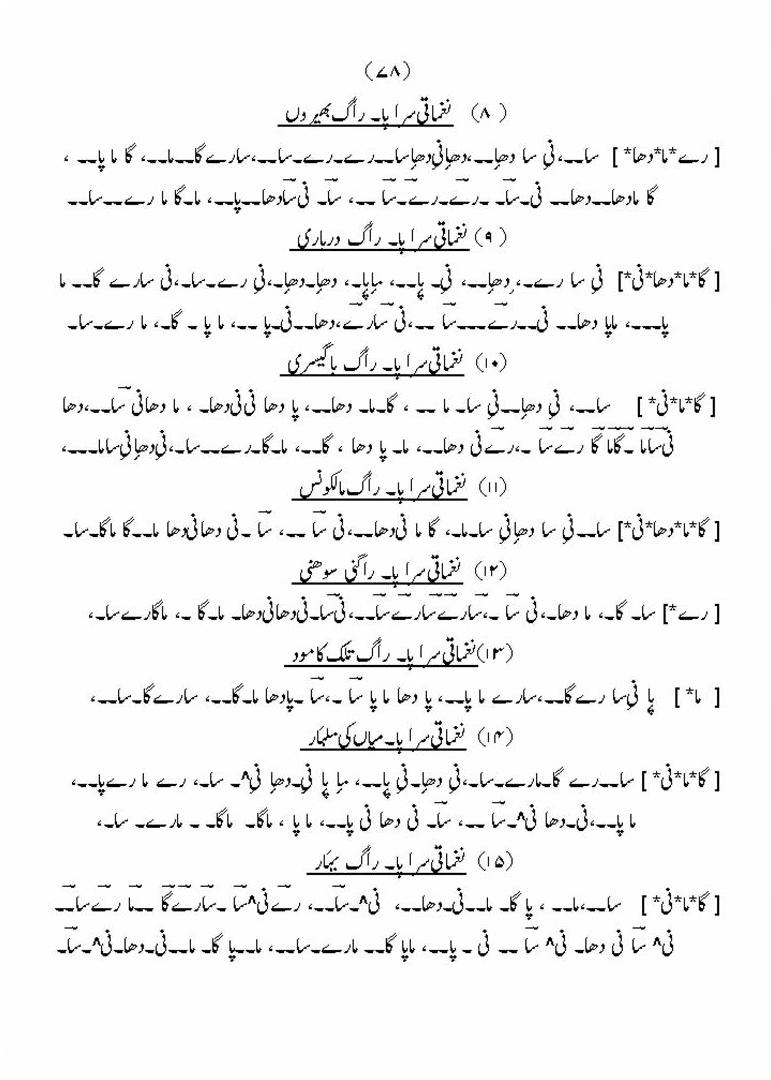 (۷۸)
(۸) نغماتی سراپا۔ راگ بھیروں
[ رے*ما*دھا* ] سا۔۔، نِی سا دھِا۔۔، دھِانِی دھِاسا۔۔رے۔رے۔سا۔۔، سارے گا۔۔ما۔۔، گا ما پا۔۔ ،
گا مادھا۔۔دھا۔۔ نی۔سَا۔ ۔رےَ۔رےَ۔سَا ۔۔، سَا۔ نی سَادھا۔۔پا۔۔، ما۔گا ما رے۔۔سا۔۔
(۹) نغماتی سراپا۔ راگ درباری
[ گا*ما*دھا*نی*] نِی سا رے۔، دھِا۔۔، نِی۔ پِا۔۔، مِاپِا۔، دھِا۔دھِا۔، نِی رے۔سا۔، نی سارے گا۔۔ ما
پا۔۔۔، ماپا دھا۔۔ نی۔۔رےَ۔۔۔سَا ۔۔، نی سَارےَ، دھا۔۔نی۔پا ۔۔، ما پا ۔ گا۔، ما رے۔سا۔
(۱۰) نغماتی سراپا۔ راگ باگیسری
[ گا*ما*نی* ] سا۔۔، نِی دھِا۔۔نِی سا۔ ما ۔۔ ، گا۔ما۔ دھا۔۔، پا دھا نی نی دھا۔ ، ما دھانی سَا۔۔، دھا
نی سَامَا ۔گَامَا گَا رےَ سَا ۔، رےَ نی دھا۔۔، ما۔ پا دھا ، گا۔۔، ما۔گا۔رے۔۔سا۔، نِی دھِانِی ساما۔۔۔،
(۱۱) نغماتی سراپا۔ راگ مالکونس
[ گا*ما*دھا*نی*] سا۔۔نِی سا دھِانِی سا۔ما۔، گا ما نی دھا۔۔، نی سَا ۔۔، سَا ۔نی دھانی دھا ما۔۔گا ماگا۔سا۔
(۱۲) نغماتی سراپا۔ راگنی سوھنی
[ رے*] سا۔ گا۔، ما دھا۔، نی سَا ۔، سَارےَسَارےَسَا۔۔، نی سَا۔نی دھانی دھا۔ ما۔گا ۔، ماگارے سا۔،
(۱۳) نغماتی سراپا۔ راگ تلک کامود
[ ما* ] پِا نِی سا رے گا۔۔، سارے ما پا۔۔، پا دھا ما پا سَا ۔، سَا ۔پادھا ما۔گا۔۔، سارے گا۔سا۔۔،
(۱۴) نغماتی سراپا۔ میاں کی ملہار
[ گا*ما*نی* ] سا۔۔رے گا۔مارے۔سا۔، نِی دھِا۔نِی پِا۔۔، مِا پِا نِی۔دھِا نِی^۔ سا۔، رے ما رے پا۔۔،
ما پا۔۔، نی۔دھا نی^۔سَا ۔۔، سَا۔ نی دھا نی پا۔۔، ما پا ، ماگا۔ ماگا۔ ۔ مارے۔ سا۔،
(۱۵) نغماتی سراپا۔ راگ بہار
[ گا*ما*نی* ] سا۔۔، ما۔۔ ، پا گا۔ ما۔۔نی۔دھا۔۔، نی^۔سَا۔۔، رےَ نی^سَا ۔سَارےَگَا ۔۔مَا رےَ سَا۔۔
نی^ سَا نی دھا۔ نی^ سَا ۔۔ نی ۔ پا۔۔، ماپا گا۔۔ مارے۔سا۔۔، ما۔۔پا گا۔ ما۔۔نی۔دھا۔نی^۔سَا۔